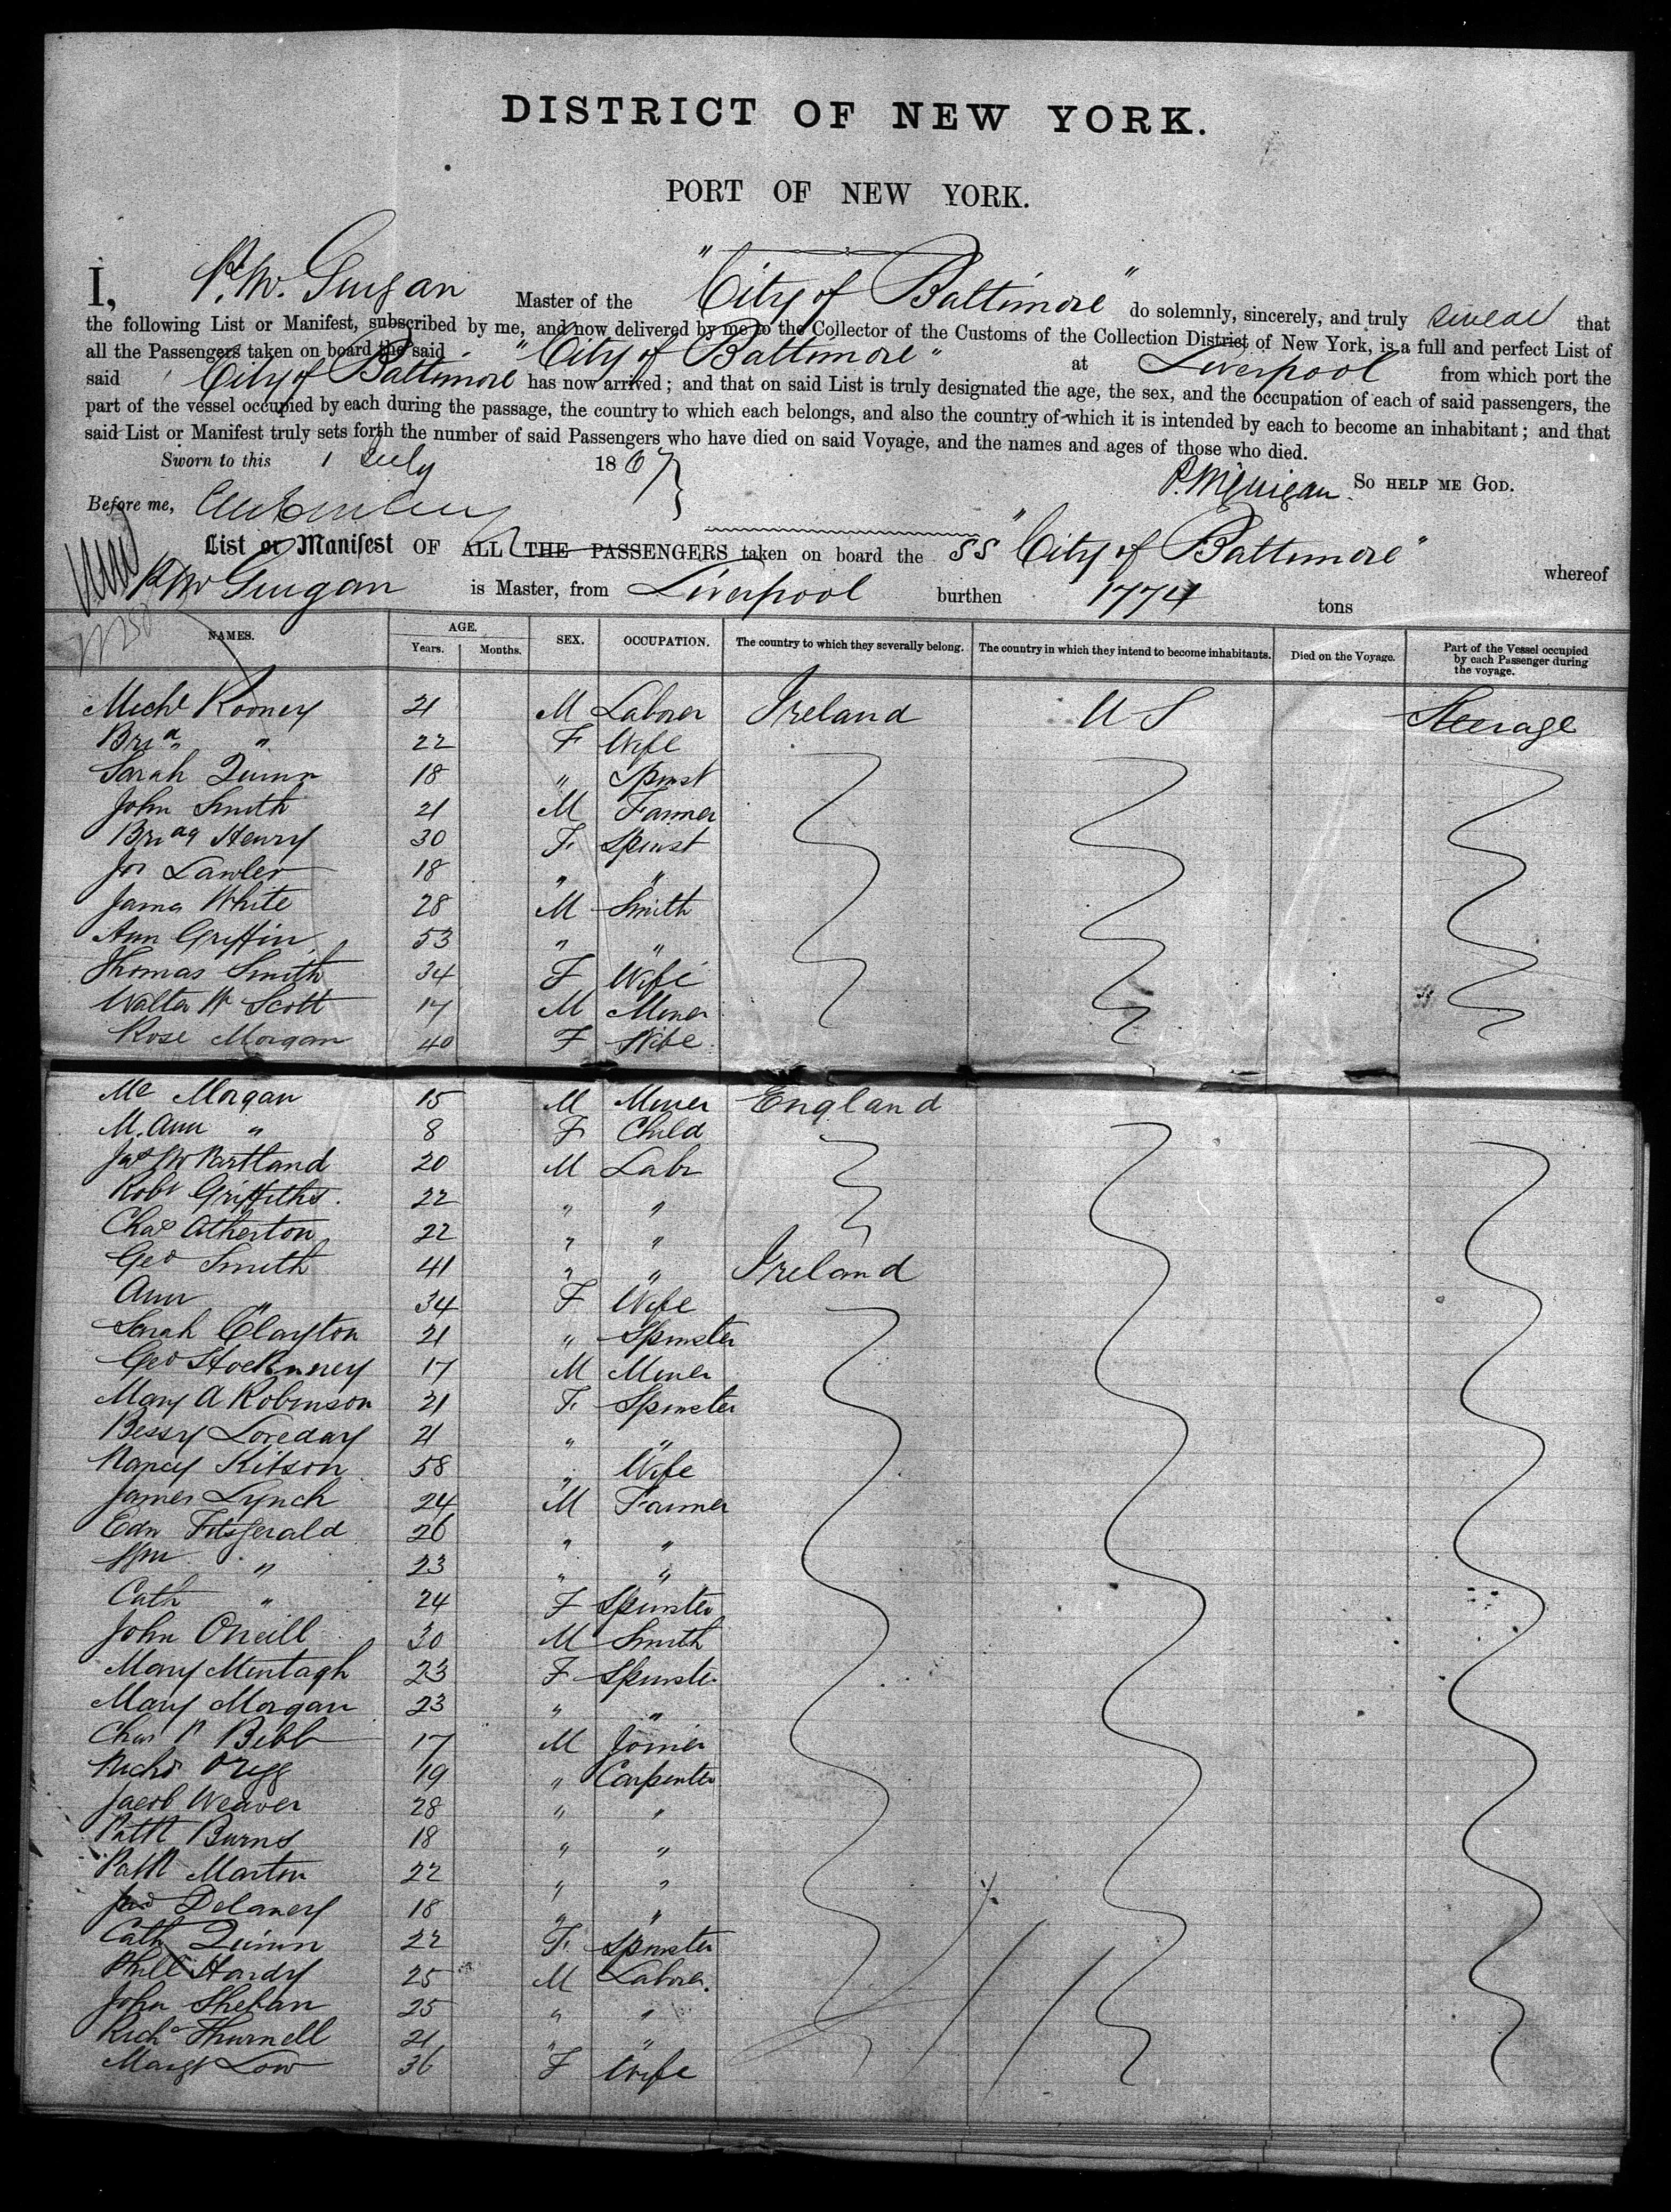 DISTRICT OF NEW YORK.
PORT OF NEW YORK.
I, P. Mc. Guigan Master of the "City of Baltimore" do solemnly, sincerely, and truly swear that
the following List or Manifest, subscribed by me, and now delivered by me to the Collector of the Customs of the Collection District of New York, is a full and perfect List of
all the Passengers taken on board the said "City of Baltimore" at Liverpool from which port the
said City of Baltimore has now arrived; and that on said List is truly designated the age, the sex, and the occupation of each of said passengers, the
part of the vessel occupied by each during the passage, the country to which each belongs, and also the country of which it is intended by each to become an inhabitant; and that
said List or Manifest truly sets forth the number of said Passengers who have died on said Voyage, and the names and ages of those who died.
Sworn to this 1 July 1867
P. McGuigan So HELP ME GOD.
Before me,
List or Manifest OF ALL THE PASSENGERS taken on board the SS "City of Baltimore" whereof
P Mc Guigan is Master, from Liverpool burthen 1774 tons
NAMES. AGE. Years. Months. SEX. OCCUPATION. The country to which they severally belong. The country in which they intend to become inhabitants. Died on the Voyage. Part of the Vessel occupied by each Passenger during the voyage.
Michl Rooney 21 M Laborer Ireland U S Steerage
" 22 F Wife
Sarah Quinn 18 " Spinst
John Smith 21 M Farmer
Henry 30 F Spinst
Lawler 18 " "
James White 28 M Smith
Ann Griffin 53 " "
Thomas Smith 34 F Wife
Walter W Scott 17 M Miner
Rose Morgan 40 F Wife
Morgan 15 M Miner England
M. Ann " 8 F Child
Jas McPartland 20 M Labr
Robt Griffiths. 22 " "
Chas Atherton 22 " "
Geo Smith 41 " " Ireland
Ann " 34 F Wife
Sarah Clayton 21 " Spinster
Geo 17 M Miner
Mary A Robinson 21 F Spinster
Bessy Loveday 21 " "
Nancy Kitson 58 " Wife
James Lynch 24 M Farmer
Edw Fitzgerald 26 " "
Wm " 23 " "
Cath " 24 F Spinster
John Oneill 30 M Smith
Mary Murtagh 23 F Spinster
Mary Morgan 23 " "
Chas P Bibb 17 M Joiner
Richd 19 " Carpenter
Jacob Weaver 28 " "
Patk Burns 18 " "
Patk Marton 22 " "
Delaney 18 " "
Cath Quinn 22 F Spinster
Phill Hardy 25 M Laborer.
John Shehan 25 " "
Richd Thurnell 21 " "
Margt Low 36 F Wife